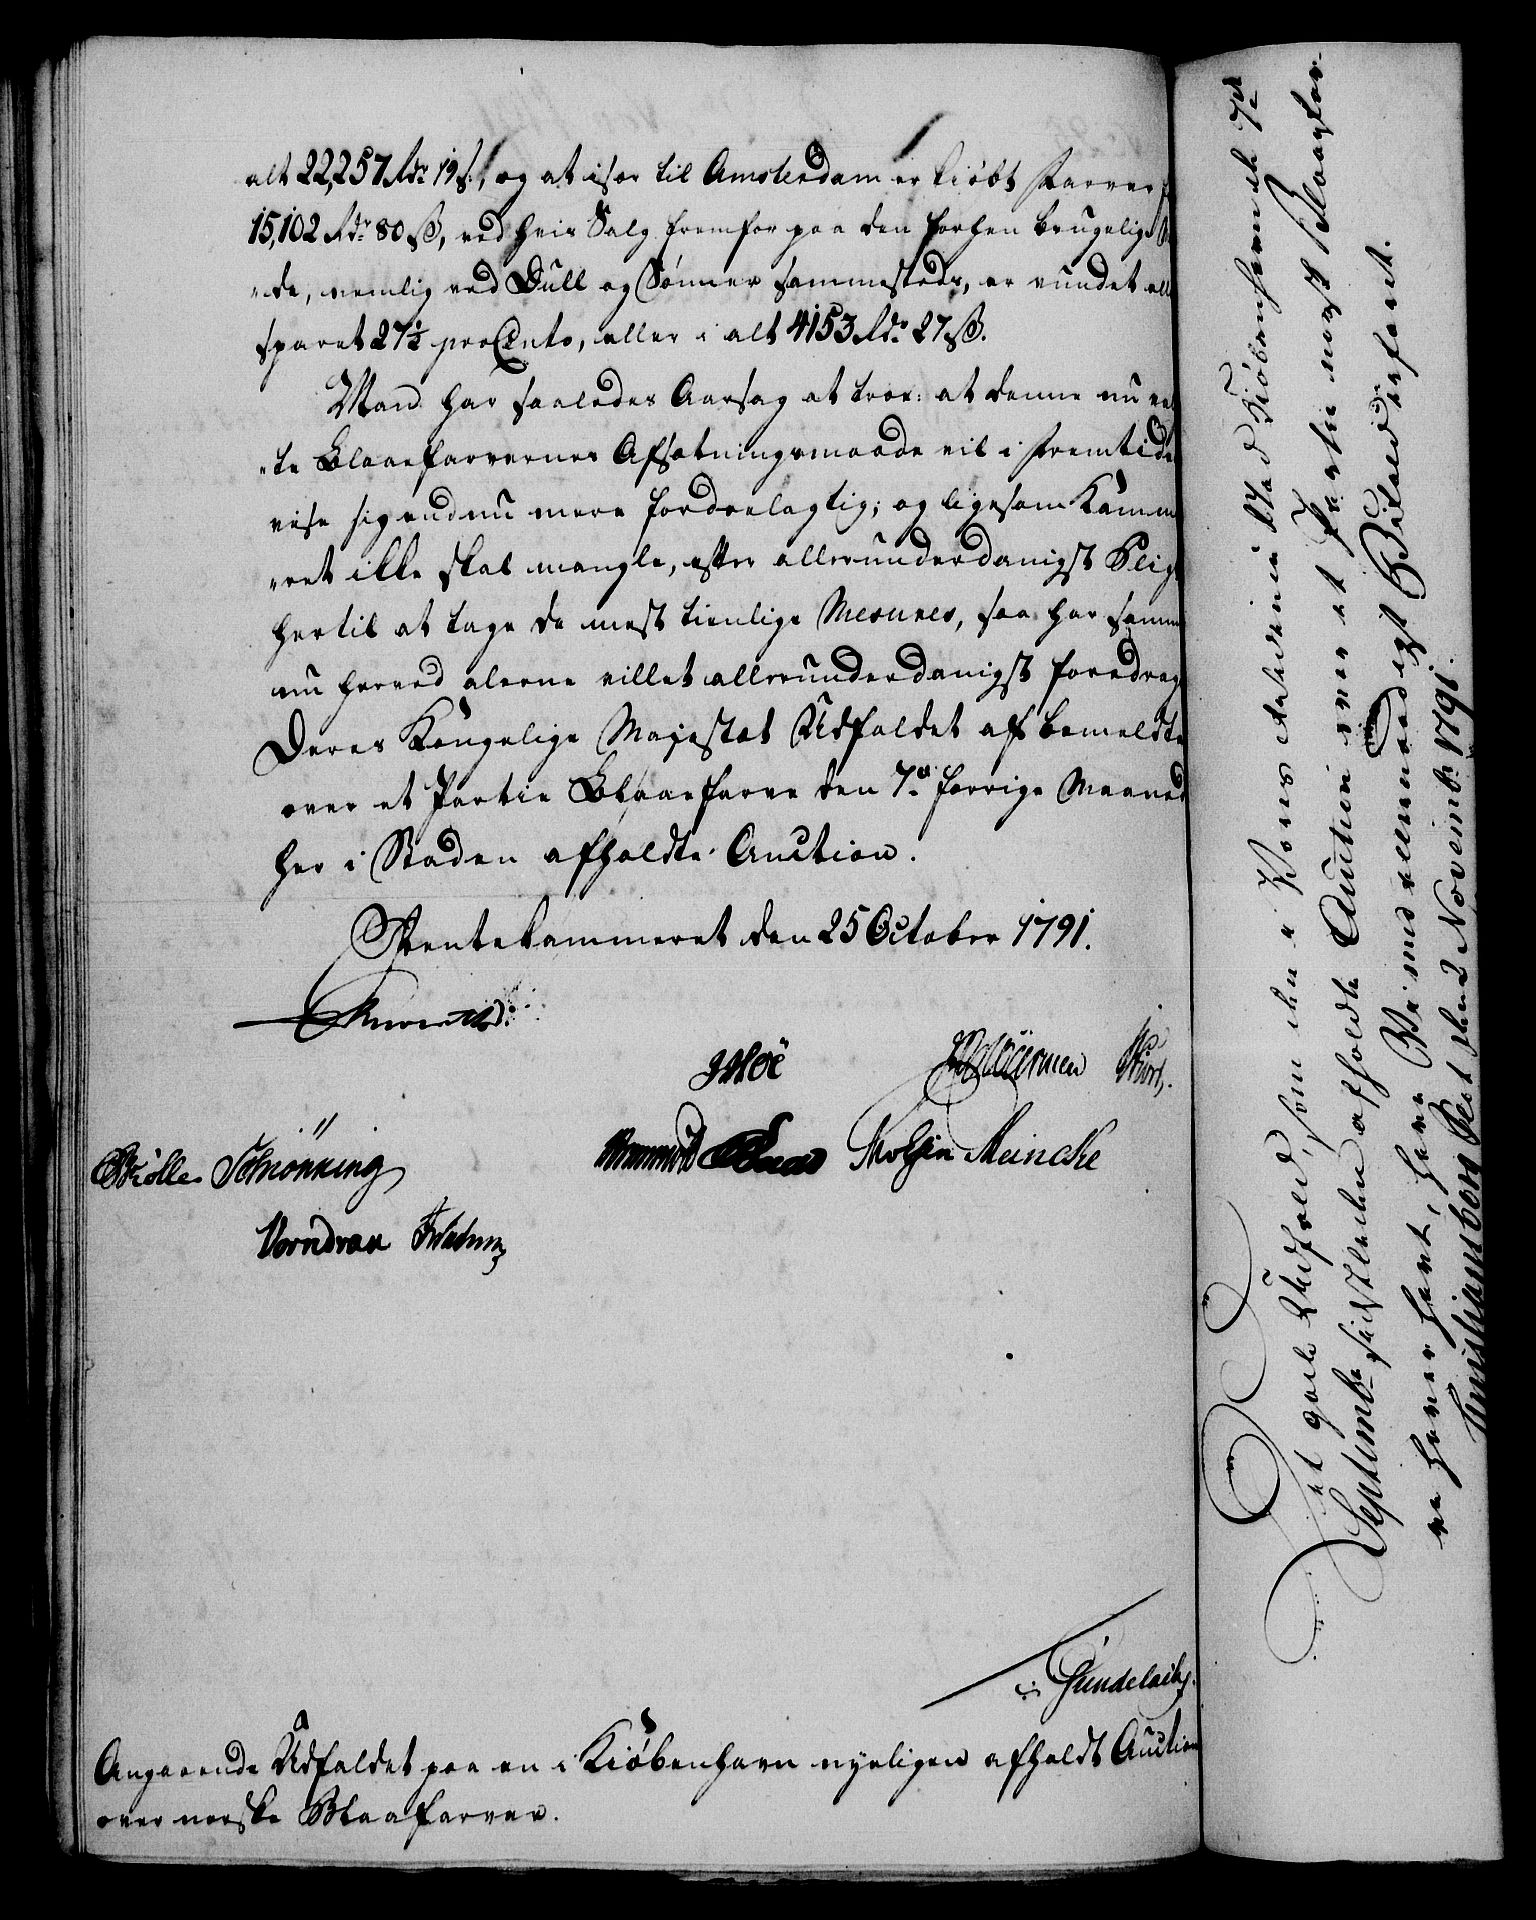 alt 22,257 Rdr 19 ß, og at især til Amsterdam er kiøbt Farver f
15,102 Rdr 80 ß, ved hvis Salg fremfor paa den forhen brugelige
"de, nemlig ved Dull og Sønner sammesteds, er vundet ell
sparet 27½ proCento, eller i alt 4153 Rdr 27 ß.
Man har saaledes Aarsag at troe: at denne nu val
"te Blaaefarvernes Afsætningsmaade vil i Fremtiden
vise sig endnu mere fordeelagtig; og ligesom Kamme
"ret ikke skal mangle, efter allerunderdanigst Pligt
hertil at tage de mest tienlige Mesures, saa har samme
nu herved aleene villet allerunderdanigst foredrage
Deres Kongelige Majestæt Udfaldet af bemeldte
over et Partie Blaaefarve den 7de forrige Maaned
her i Staden afholdte Auction.
Rentekammeret den 25 October 1791.
Schiønning Meincke
Vorndran
Gundelach
Angaaende Udfaldet paa en i Kiøbenhavn nyeligen afholdt Auction
over norske Blaafarver.
Det gode Udfald, som den i Vores Residents Stad Kiøbenhavn den 7de
Septembr sidstleden afholdte Auction over et Partie norsk Blaaefar-
ve haver havt, have Vi med allernaadigst Bifald erfaret.
Christiansborg Slot den 2 Novembr 1791.